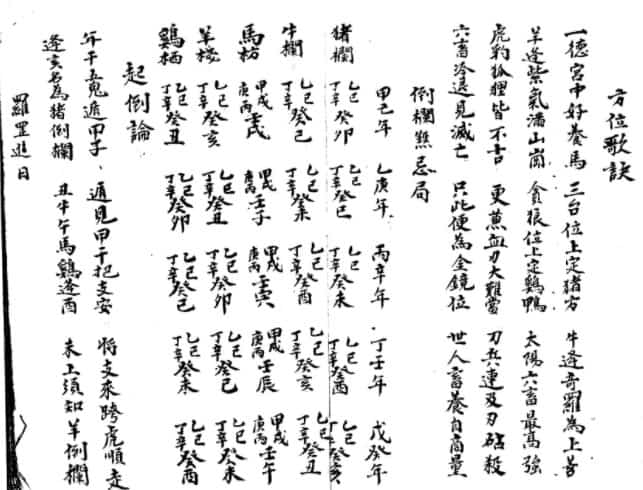 方位歌訣
一德宮中好養馬 三台位上定猪方 牛逢奇羅為上吉
羊逢紫氣滿山崗 貪狼位上定鷄鴨 太陽六畜最高強
虎豹狐狸皆不吉 更蒸血刃大難當 刀兵連及刃砧殺
六畜冷退見滅亡 只此便為金鏡位 世人畜養自商量
倒欄煞忌局
甲己年 乙庚年 丙辛年 丁壬年 戊癸年
猪欄 乙己丁辛癸卯 乙己丁辛癸巳 乙己丁辛癸未 乙己丁辛癸酉 乙己丁辛癸亥
牛欄 乙己丁辛癸巳 乙己丁辛癸未 乙己丁辛癸酉 乙己丁辛癸亥 乙己丁辛癸丑
馬枋 甲戊庚丙壬戌 甲戊庚丙壬子 甲戊庚丙壬寅 甲戊庚丙壬辰 甲戊庚丙壬午
羊棧 乙己丁辛癸亥 乙己丁辛癸丑 乙己丁辛癸卯 乙己丁辛癸巳 乙己丁辛癸未
鷄栖 乙己丁辛癸丑 乙己丁辛癸卯 乙己丁辛癸巳 乙己丁辛癸未 乙己丁辛癸酉
起倒論
年干五鬼遁甲子 遁見甲干把支安 將支來跨虎順走
逢亥名為猪倒欄 丑牛午馬鷄逢酉 未上須知羊倒欄
羅罡進日